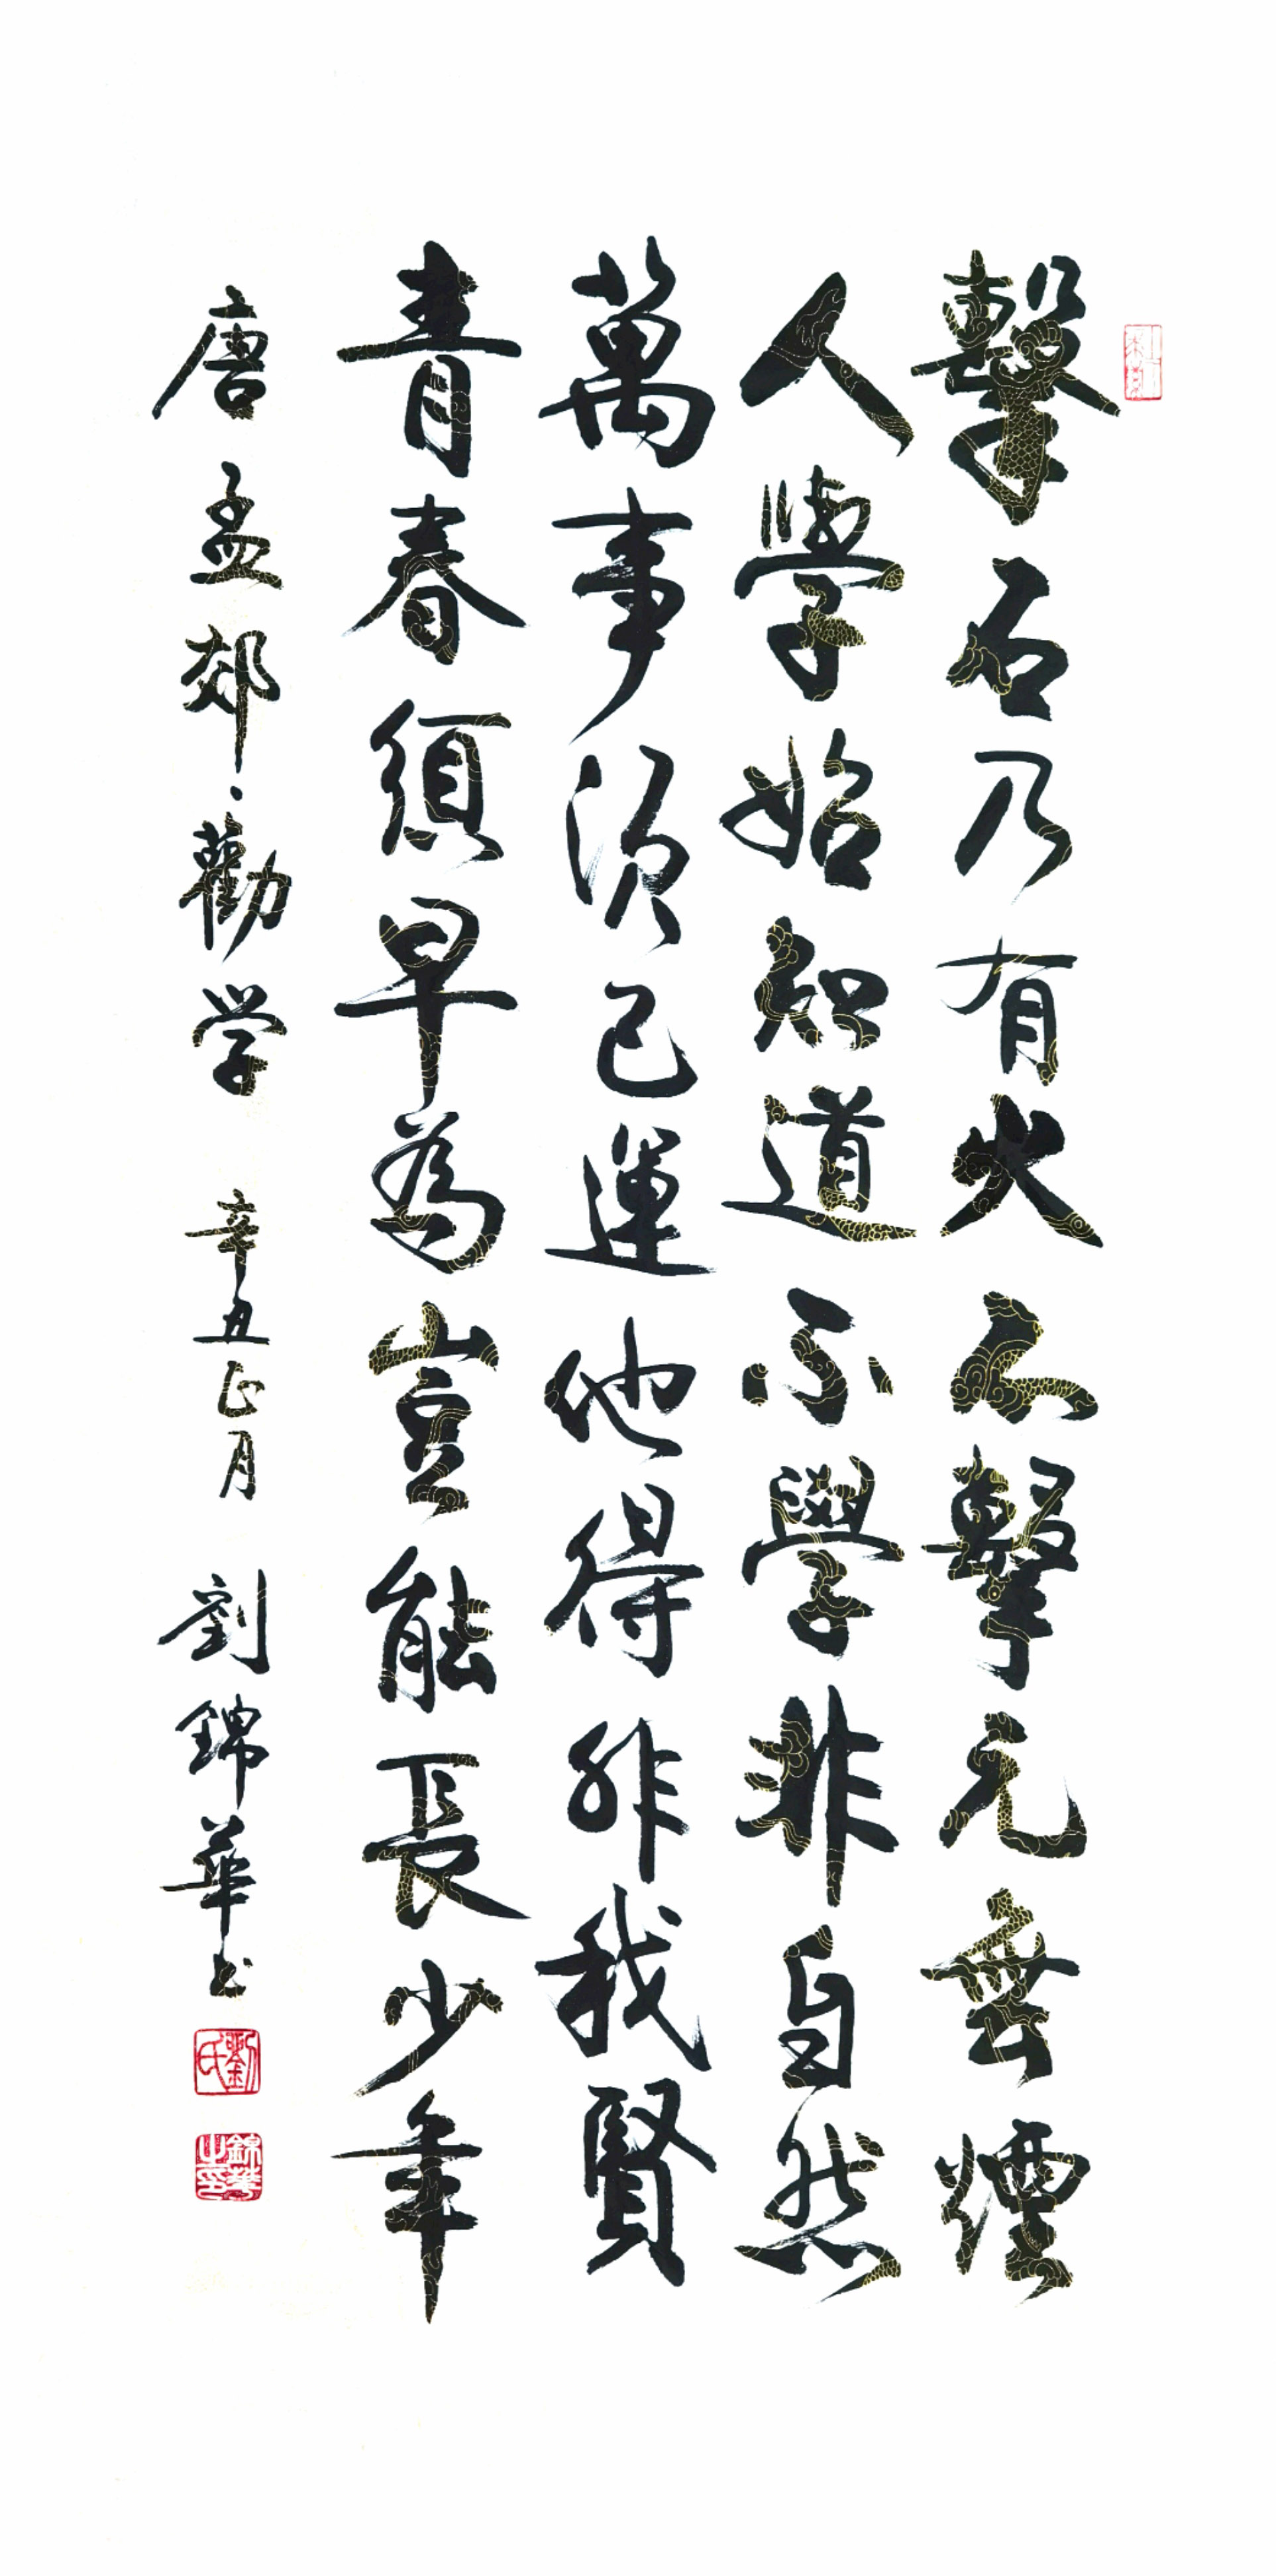 擊石乃有火不擊元無煙
人學始知道不學非自然
萬事須己運他得非我賢
青春須早為豈能長少年
唐孟郊·勸学 辛丑正月 劉錦華书
劉氏
錦華之印